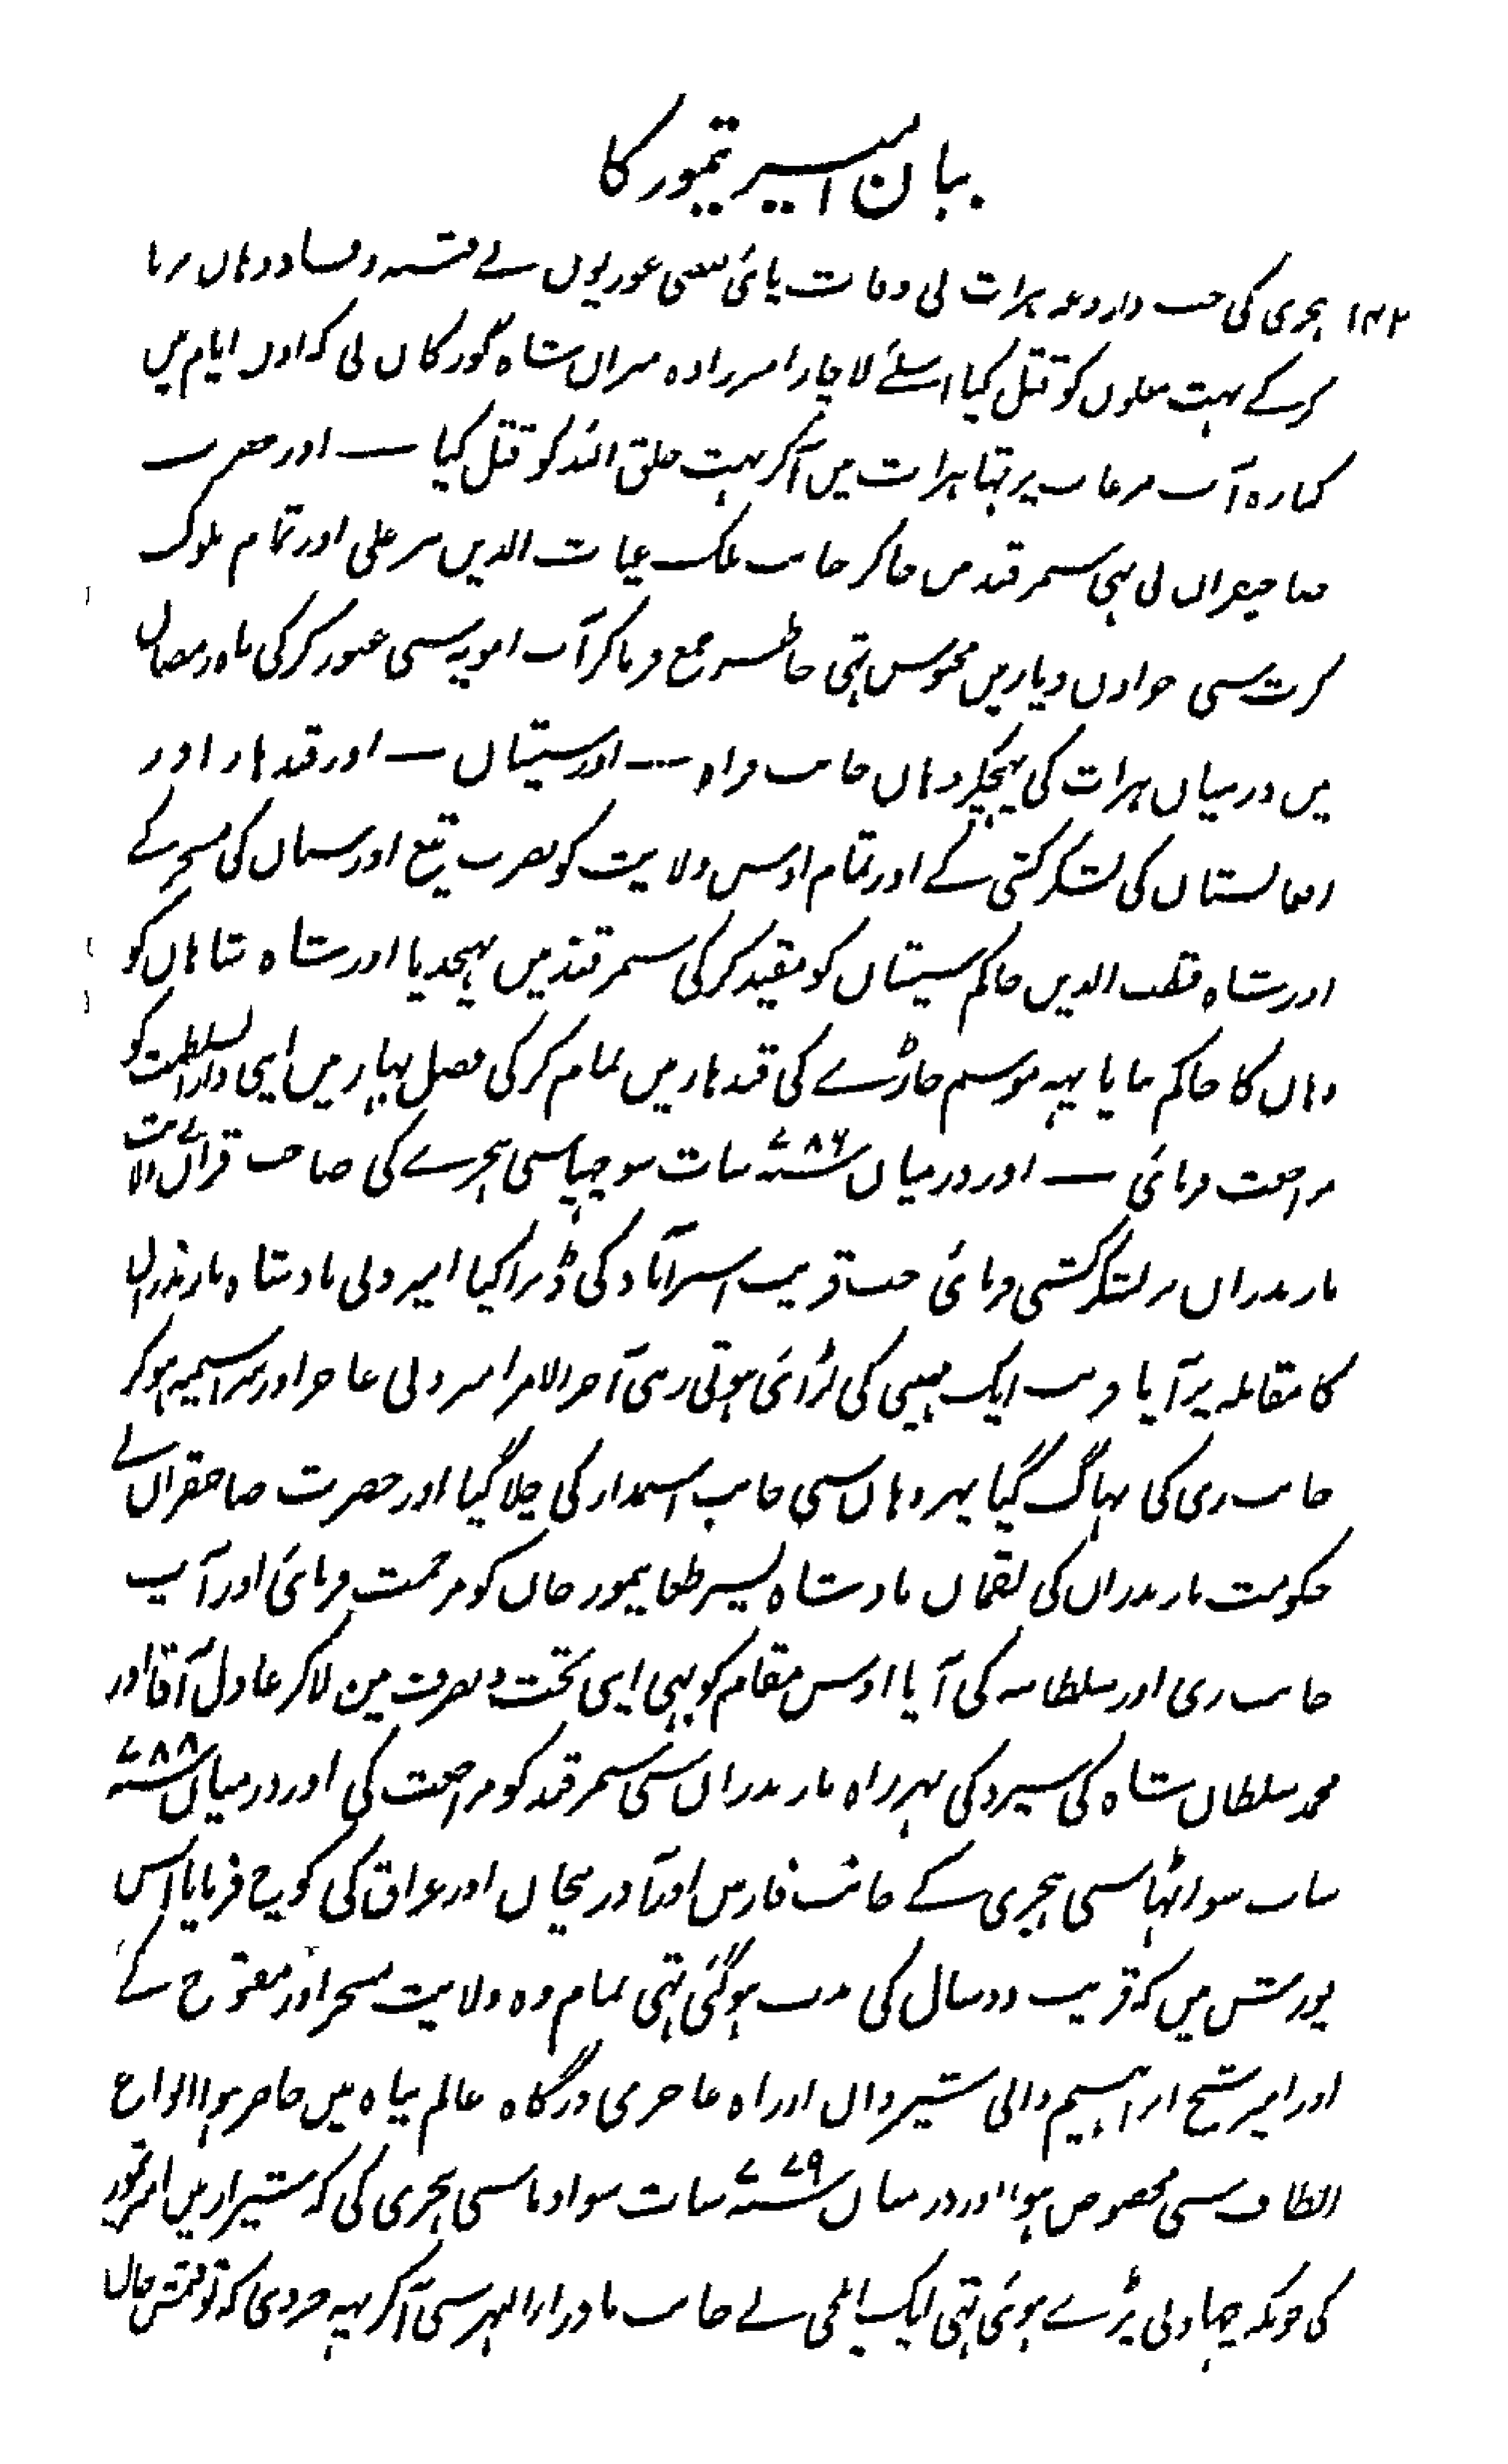 بیان امیر تیمور کا
۱۴۲ ہجری کی جب داروغہ ہرات نی وفات پائی بعضی غوریوں نے فتنہ و فساد وہاں برپا
کرکے بہت مغلوں کو قتل کیا اسلئے لاچار امیرزادہ میراں شاہ گورکاں نی کہ اوں ایام میں
کنارہ آب مرغاب پر تہا ہرات میں آکر بہت خلق اللہ کو قتل کیا — اور حضرت
صاحبقراں نی بہی سمرقند میں جاکر جانب ملک غیاث الدین پیر علی اور تمام ملوک
کرت سی جو اوں دیار میں محبوس تہی خاطر جمع فرماکر آب امویہ سی عبور کرکی ماہ رمضان
میں درمیاں ہرات کی پہنچکر وہاں جانب فراہ — اور سیتاں — اور قندہار اور
افغانستاں کی لشکر کشی کے اور تمام اوس ولایت کو بضرب تیغ اور سناں کی مسخر کے
اور شاہ قطب الدین حاکم سیستاں کو مقید کرکی سمرقند میں بہیجدیا اور شاہ شاہاں کو
وہاں کا حاکم بنایا یہہ موسم جاڑے کی قندہار میں تمام کرکی فصل بہار میں اپنی دارالسلطنت کو
مراجعت فرمائی — اور درمیاں ۷۸۶ سنہ سات سو چہیاسی ہجرے کی صاحب قراں نے
ماژندراں پر لشکر کشی فرمائی جب قریب استرآباد کی ڈیرا کیا امیر ولی بادشاہ ماژندراں
کا مقابلہ پر آیا قریب ایک مہینی کی لڑائی ہوتی رہی آخرالامر امیر ولی عاجز اور سراسیمہ ہوکر
جانب ری کی بہاگ گیا پہر وہاں سی جانب استمدار کی چلا گیا اور حضرت صاحبقراں نے
حکومت ماژندراں کی لقماں بادشاہ پسر طغا تیمور خاں کو مرحمت فرمائی اور آپ
جانب ری اور سلطانیہ کی آیا اوس مقام کو بہی اپنی تحت و تصرف میں لاکر عادل آقا اور
محمد سلطاں شاہ کی سپرد کی پہر راہ ماژندراں سی سمرقند کو مراجعت کی اور درمیاں ۷۸۸ سنہ
سات سو اٹہاسی ہجری کے جانب فارس اور آذربیجاں اور عراق کی کوچ فرمایا اس
یورش میں کہ قریب دو سال کی مدت ہوگئی تہی تمام وہ ولایت مسخر اور مفتوح کے
اور امیر شیخ ابراہیم والی شیرواں از راہ عاجزی درگاہ عالم پناہ میں حاضر ہوا انواع
الطاف سی مخصوص ہوا اور درمیاں ۷۷۹ سنہ سات سو اوناسی ہجری کی کہ شیراز میں امیر تیمور
کی جونکہ چہاونی پڑے ہوئی تہی ایک ایلچی نے جانب ماوراء النہر سی آکر یہہ خبر دی کہ توقتمش خاں